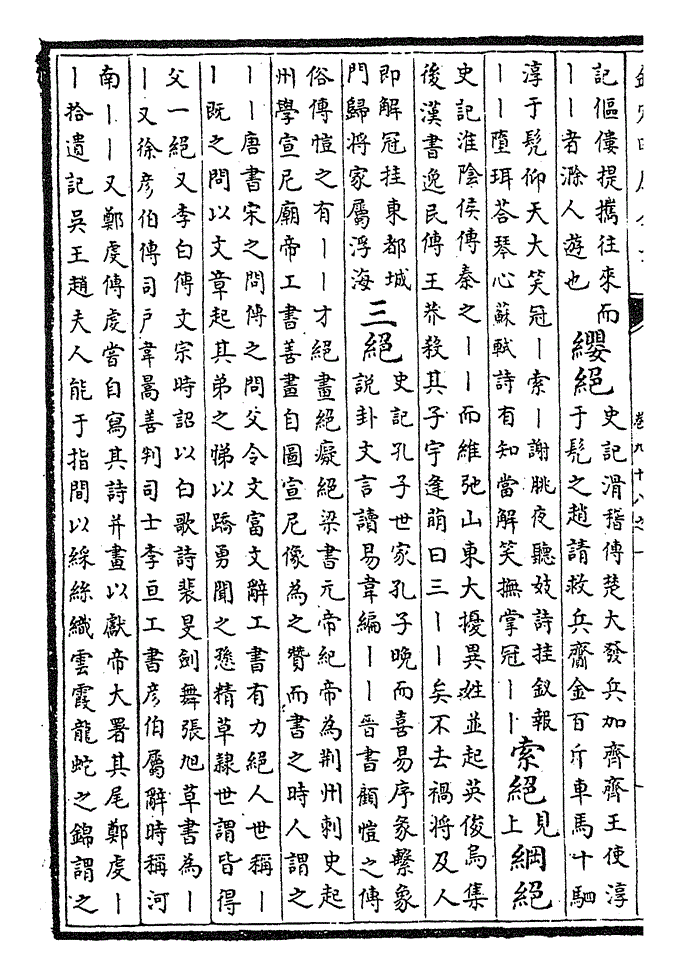 卷九十八之一
記傴僂提攜往來而
丨丨者滁人遊也
纓絕
史記滑稽傳楚大發兵加齊齊王使淳
于髠之趙請救兵齎金百斤車馬十駟
淳于髠仰天大笑冠丨索丨謝朓夜聽妓詩挂釵報
丨丨墮珥荅琴心蘇軾詩有知當解笑撫掌冠丨丨
索絕
見
上
綱絕
史記淮陰侯傳秦之丨丨而維弛山東大擾異姓並起英俊烏集
後漢書逸民傳王莽殺其子宇逢萌曰三丨丨矣不去禍將及人
即解冠挂東都城
門歸將家屬浮海
三絕
史記孔子世家孔子晚而喜易序彖繫象
說卦文言讀易韋編丨丨晉書顧愷之傳
俗傳愷之有丨丨才絕畫絕癡絕梁書元帝紀帝為荆州刺史起
州學宣尼廟帝工書善畫自圖宣尼像為之贊而書之時人謂之
丨丨唐書宋之問傳之問父令文富文辭工書有力絕人世稱丨
丨既之問以文章起其弟之悌以蹻勇聞之愻精草隸世謂皆得
父一絕又李白傳文宗時詔以白歌詩裴旻劍舞張旭草書為丨
丨又徐彥伯傳司戶韋暠善判司士李亘工書彥伯屬辭時稱河
南丨丨又鄭虔傳虔嘗自寫其詩并畫以獻帝大署其尾鄭虔丨
丨拾遺記吳王趙夫人能于指間以綵絲織雲霞龍蛇之錦謂之